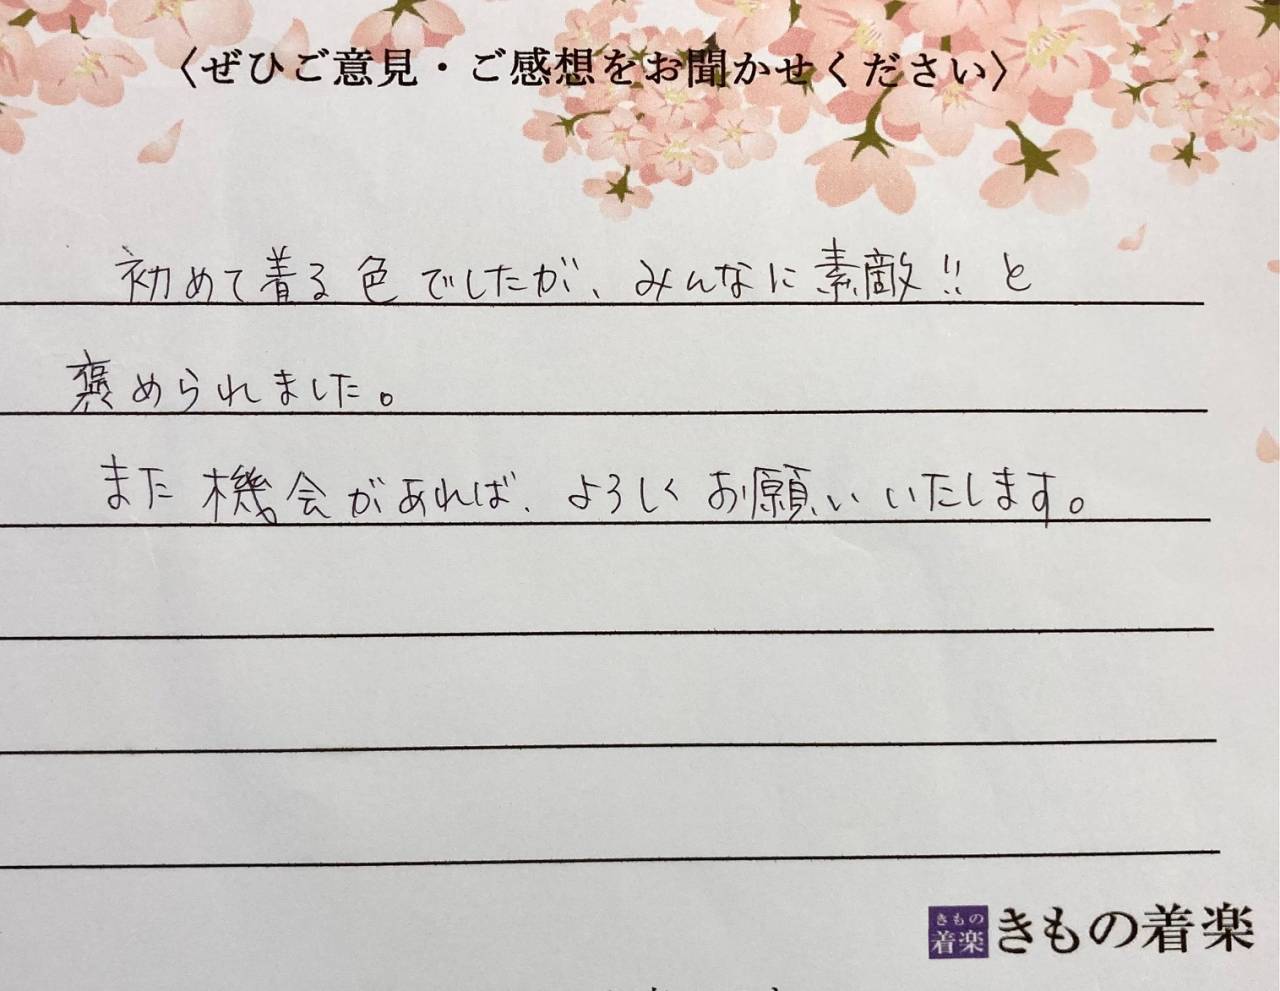 〈ぜひご意見・ご感想をお聞かせください〉
初めて着る色でしたが、みんなに素敵!!と
褒められました。
また機会があれば、よろしくお願いいたします。
きもの
着楽
きもの着楽